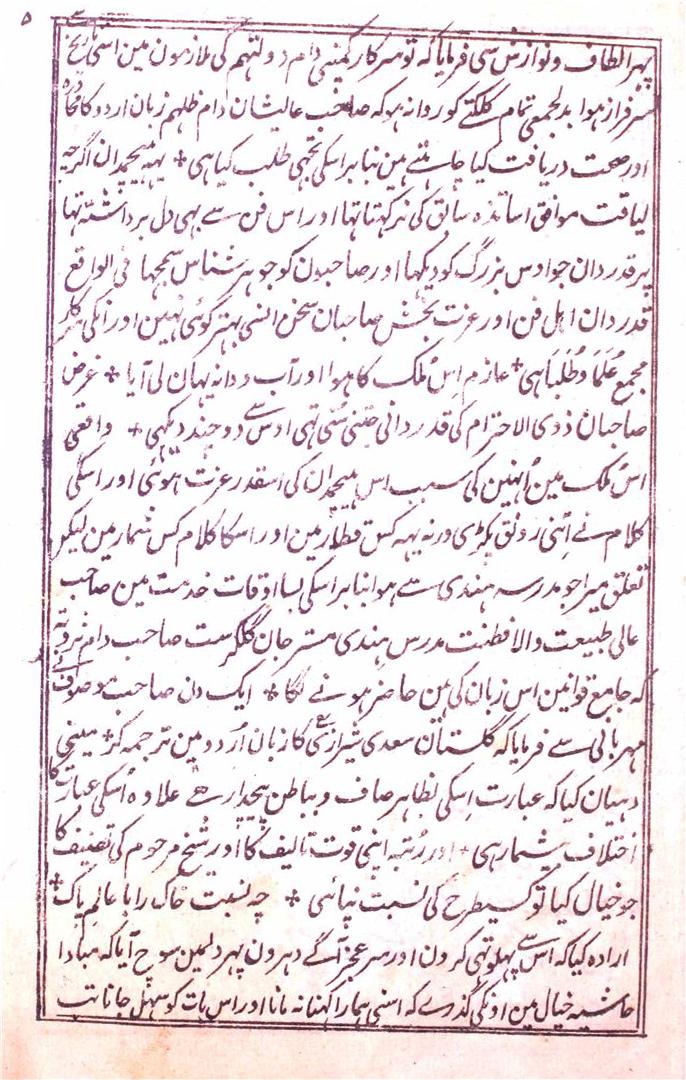 ۵
پھر الطاف و نوازش سی فرمایا کہ تو سرکار کمپنی دام دولتہم کی ملازمون مین اسی تاریخ
سرفراز ہوا بدلجمعی تمام کلکتے کو روانہ ہو کہ صاحب عالیشان دام ظلہم زبان اردو کا محاورہ
اور صحت دریافت کیا چاہتے ہین بنا بر اسکی تجہی طلب کیا ہی ✣ یہہ ہیچمدان اگرچہ
لیاقت موافق اساتذہ سابق کی نرکہتا تہا اور اس فن سے بہی دل برداشتہ تہا
پر قدردان جو اوس بزرگ کو دیکہا اور صاحبون کو جوہر شناس سمجہا فی الواقع
قدردان اہل فن اور عزت بخش صاحبان سخن انسی بہتر کوئی نہین اور انکی سرکار
مجمع عُلَمَا و طُلَبَا ہی ✣ عازم اِس مُلک کا ہوا اور آب و دانہ یہان لی آیا ✣ غرض
صاحبان ذوی الاحترام کی قدردانی جتنی سُنی تہی اوس سے دو چند دیکہی ✣ واقعی
اس مُلک مین اُنہین کی سبب اس ہیچمدان کی اسقدر عزت ہوئی اور اسکی
کلام نے اِتنی رونق پکڑی ورنہ یہہ کس قطار مین اور اسکا کلام کس شمار مین لیکن
تعلق میرا جو مدرسہ ہندی سے ہوا بنا بر اسکی بسا اوقات خدمت مین صاحب
عالی طبیعت والا فطنت مدرس ہندی مستر جان گلکرست صاحب دام ثروتہ
کہ جامع قوانین اس زبان کی ہین حاضر ہونے لگا ✣ ایک دن صاحب موصوف نے
مہربانی سے فرمایا کہ گلستان سعدی شیرازی کا زبان اُردو مین ترجمہ کر ✣ مینی
دہیان کیا کہ عبارت اِسکی بظاہر صاف و بباطن پیچدار ہے علاوہ اُسکی عبارت کا
اختلاف بیشمار ہی ✣ اور رُتبہ اپنی قوت تالیف کا اور شیخ مرحوم کی تصنیف کا
جو خیال کیا تو کسیطرح کی نسبت نپائی ✣ چہ نسبت خاک را با عالم پاک ✣
ارادہ کیا کہ اس سے پہلو تہی کرون اور سر عجز آگے دہرون پہر دلمین سوچ آیا کہ مبادا
حاشیہ خیال مین اونکی گذرے کہ اسنی ہمارا کہنا نہ مانا اور اس بات کو سہل جانا تب